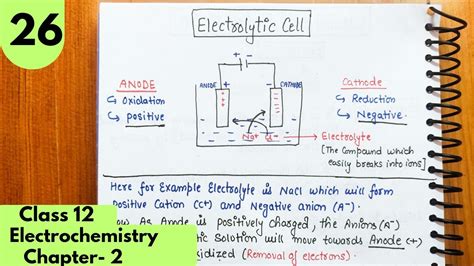 26
Electrolytic Cell
+ -
ANODE
Oxidation
positive
ANODE +
- CATHODE
Cathode
Reduction
Negative.
Na+ Cl-
Electrolyte
[The Compound which
easily breaks into ions]
Here for Example Electrolyte is NaCl which will form
Positive Cation (C+) and Negative anion (A-).
Now As Anode is positively charged, the Anions (A-)
Solution will move towards Anode (+)
(Removal of electrons)
Class 12
Electrochemistry
Chapter- 2